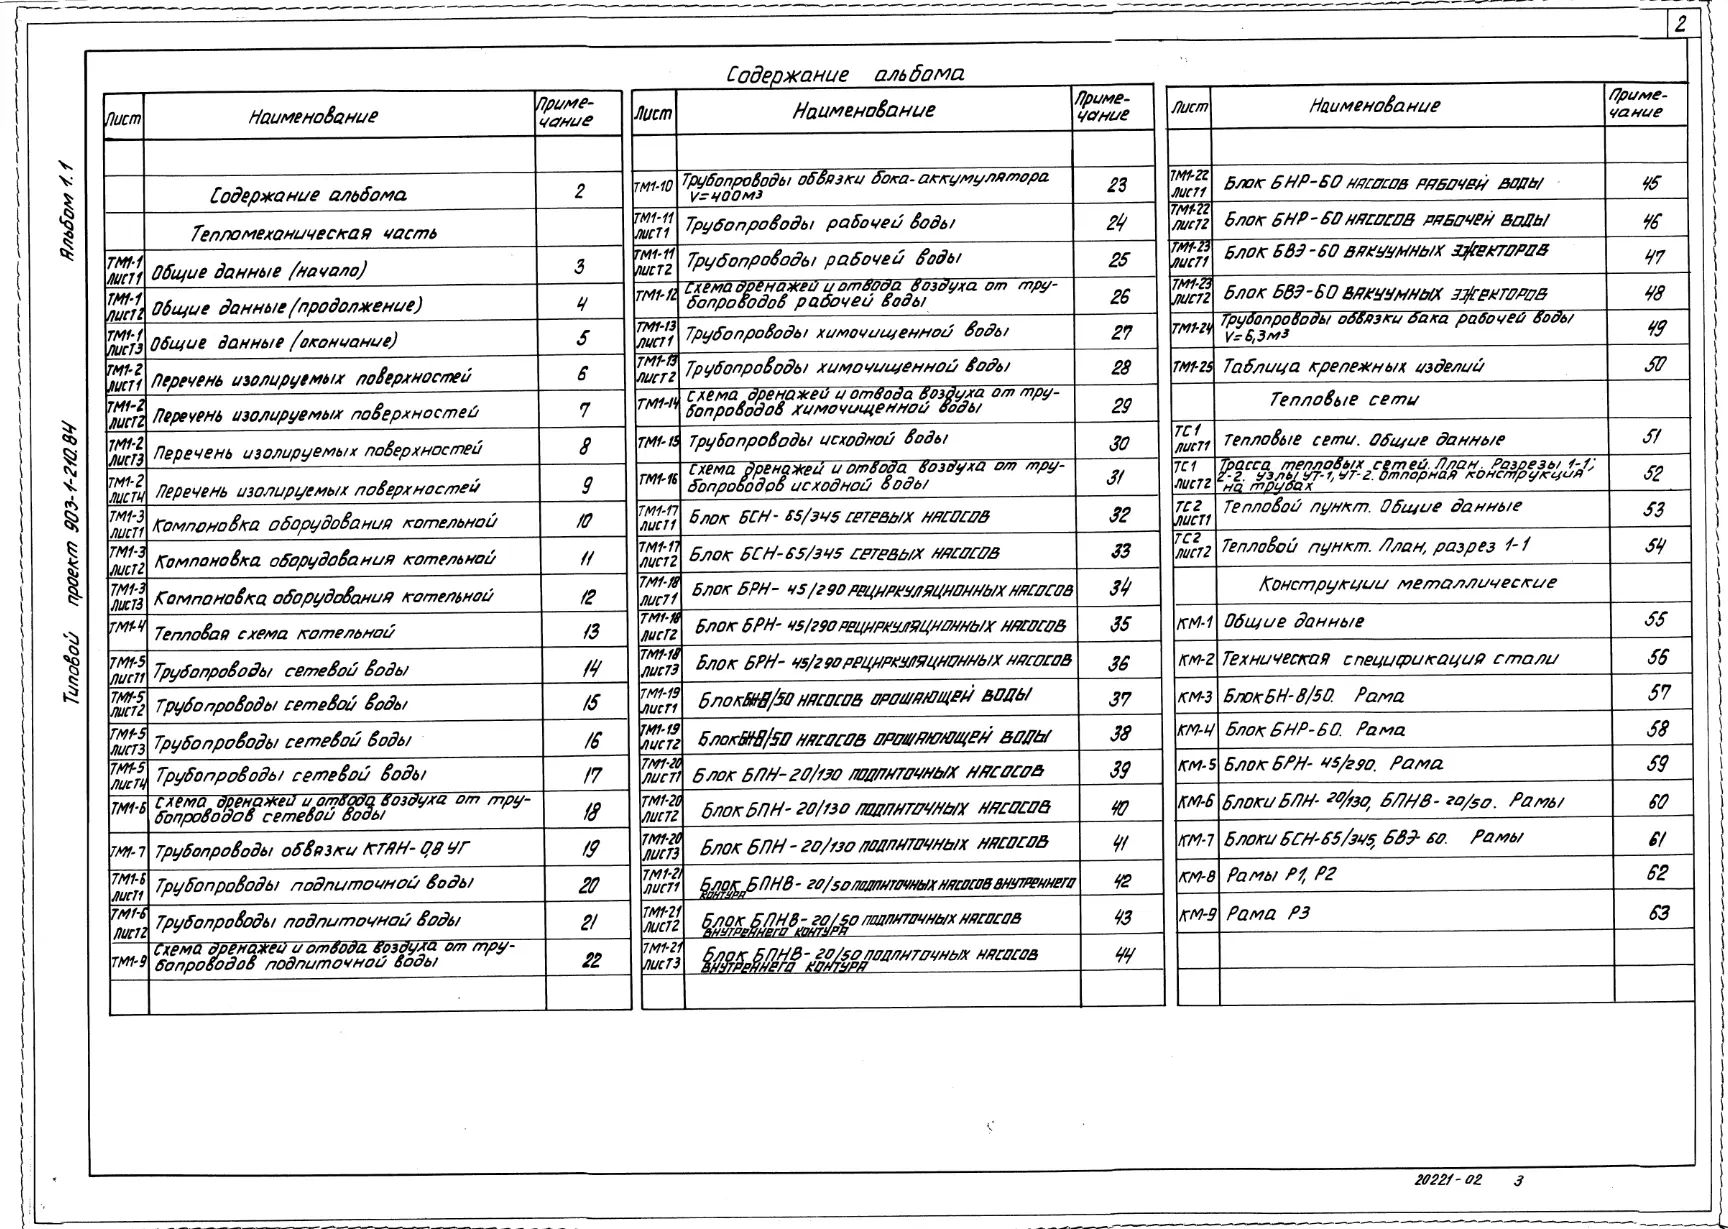 2
Содержание альбома
Альбом 1.1
Типовой проект 903-1-210.84
Лист Наименование Примечание
Содержание альбома 2
Тепломеханическая часть
ТМ1-1 лист1 Общие данные (начало) 3
ТМ1-1 лист2 Общие данные (продолжение) 4
ТМ1-1 лист3 Общие данные (окончание) 5
ТМ1-2 лист1 Перечень изолируемых поверхностей 6
ТМ1-2 лист2 Перечень изолируемых поверхностей 7
ТМ1-2 лист3 Перечень изолируемых поверхностей 8
ТМ1-2 лист4 Перечень изолируемых поверхностей 9
ТМ1-3 лист1 Компоновка оборудования котельной 10
ТМ1-3 лист2 Компоновка оборудования котельной 11
ТМ1-3 лист3 Компоновка оборудования котельной 12
ТМ1-4 Тепловая схема котельной 13
ТМ1-5 лист1 Трубопроводы сетевой воды 14
ТМ1-5 лист2 Трубопроводы сетевой воды 15
ТМ1-5 лист3 Трубопроводы сетевой воды 16
ТМ1-5 лист4 Трубопроводы сетевой воды 17
ТМ1-6 Схема дренажей и отвода воздуха от тру-
бопроводов сетевой воды 18
ТМ1-7 Трубопроводы обвязки КТАН-0,8 УГ 19
ТМ1-6 лист1 Трубопроводы подпиточной воды 20
ТМ1-6 лист2 Трубопроводы подпиточной воды 21
ТМ1-9 Схема дренажей и отвода воздуха от тру-
бопроводов подпиточной воды 22
Лист Наименование Примечание
ТМ1-10 Трубопроводы обвязки бака-аккумулятора
V=400м3 23
ТМ1-11 лист1 Трубопроводы рабочей воды 24
ТМ1-11 лист2 Трубопроводы рабочей воды 25
ТМ1-12 Схема дренажей и отвода воздуха от тру-
бопроводов рабочей воды 26
ТМ1-13 лист1 Трубопроводы химочищенной воды 27
ТМ1-13 лист2 Трубопроводы химочищенной воды 28
ТМ1-14 Схема дренажей и отвода воздуха от тру-
бопроводов химочищенной воды 29
ТМ1-15 Трубопроводы исходной воды 30
ТМ1-16 Схема дренажей и отвода воздуха от тру-
бопроводов исходной воды 31
ТМ1-17 лист1 Блок БСН-65/345 сетевых насосов 32
ТМ1-17 лист2 Блок БСН-65/345 сетевых насосов 33
ТМ1-18 лист1 Блок БРН-45/290 рециркуляционных насосов 34
ТМ1-18 лист2 Блок БРН-45/290 рециркуляционных насосов 35
ТМ1-18 лист3 Блок БРН-45/290 рециркуляционных насосов 36
ТМ1-19 лист1 Блок БН-8/50 насосов орошающей воды 37
ТМ1-19 лист2 Блок БН-8/50 насосов орошающей воды 38
ТМ1-20 лист1 Блок БПН-20/130 подпиточных насосов 39
ТМ1-20 лист2 Блок БПН-20/130 подпиточных насосов 40
ТМ1-20 лист3 Блок БПН-20/130 подпиточных насосов 41
ТМ1-21 лист1 Блок БПНВ-20/50 подпиточных насосов внутреннего
контура 42
ТМ1-21 лист2 Блок БПНВ-20/50 подпиточных насосов
внутреннего контура 43
ТМ1-21 лист3 Блок БПНВ-20/50 подпиточных насосов
внутреннего контура 44
Лист Наименование Примечание
ТМ1-22 лист1 Блок БНР-60 насосов рабочей воды 45
ТМ1-22 лист2 Блок БНР-60 насосов рабочей воды 46
ТМ1-23 лист1 Блок БВЭ-60 вакуумных эжекторов 47
ТМ1-23 лист2 Блок БВЭ-60 вакуумных эжекторов 48
ТМ1-24 Трубопроводы обвязки бака рабочей воды
V=6,3м3 49
ТМ1-25 Таблица крепежных изделий 50
Тепловые сети
ТС1 лист1 Тепловые сети. Общие данные 51
ТС1 лист2 Трасса тепловых сетей. План. Разрезы 1-1;
2-2. Узлы УТ-1, УТ-2. Отпорная конструкция
на трубах 52
ТС2 лист1 Тепловой пункт. Общие данные 53
ТС2 лист2 Тепловой пункт. План, разрез 1-1 54
Конструкции металлические
КМ-1 Общие данные 55
КМ-2 Техническая спецификация стали 56
КМ-3 Блок БН-8/50. Рама 57
КМ-4 Блок БНР-60. Рама 58
КМ-5 Блок БРН-45/290. Рама 59
КМ-6 Блоки БПН-20/130, БПНВ-20/50. Рамы 60
КМ-7 Блоки БСН-65/345, БВЭ-60. Рамы 61
КМ-8 Рамы Р1, Р2 62
КМ-9 Рама Р3 63
20221-02 3